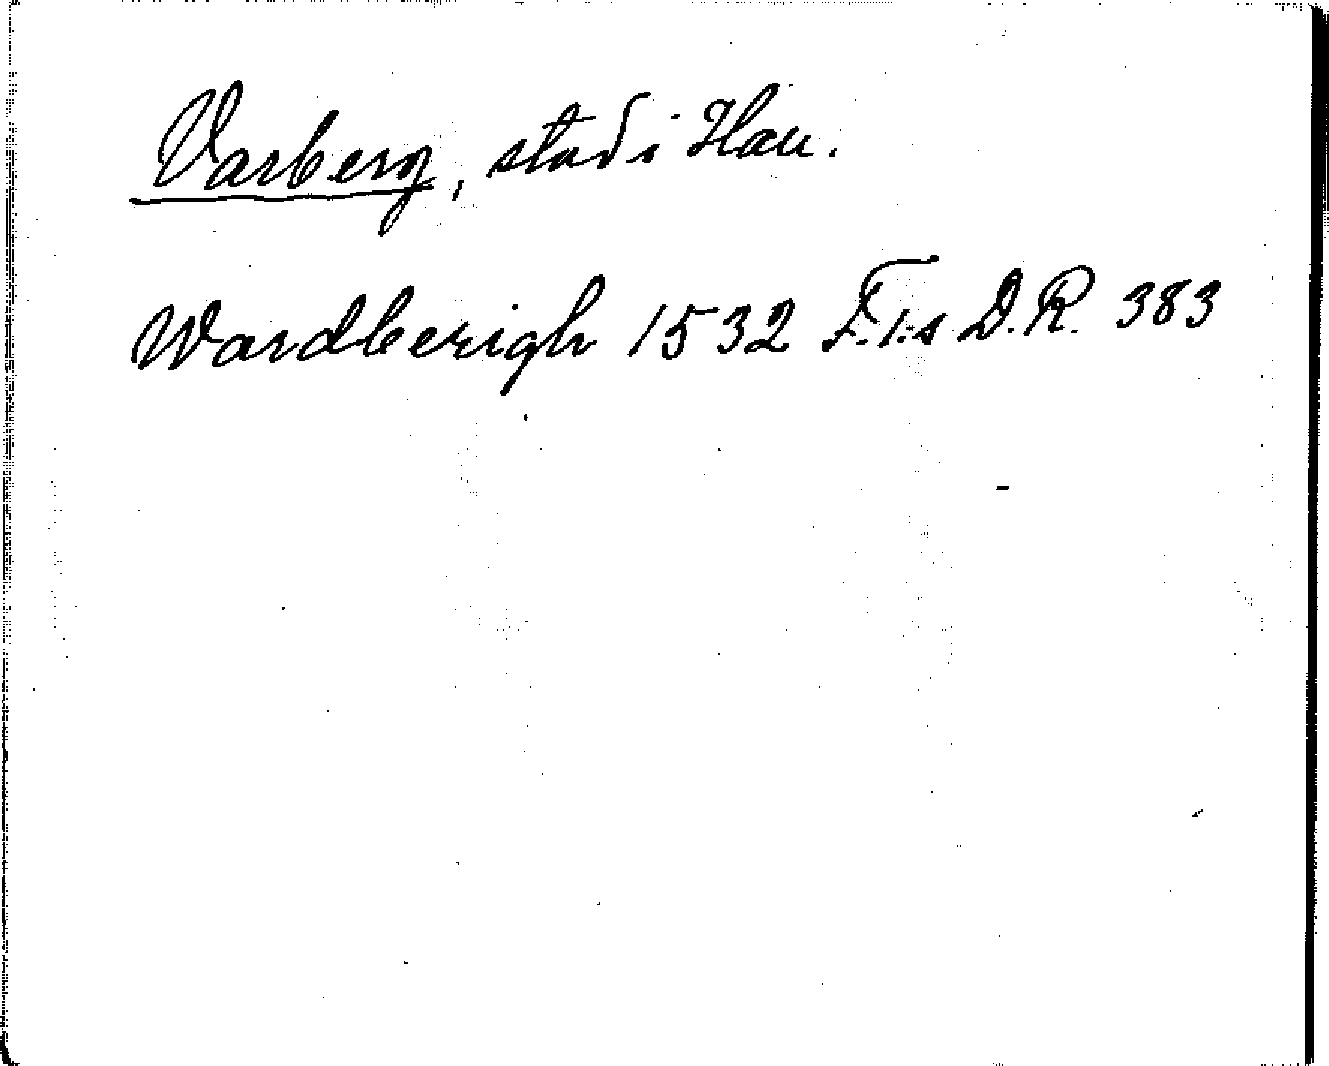 Varberg, stad i Hau.
Wardberigh 1532 F. I:s D.R. 383